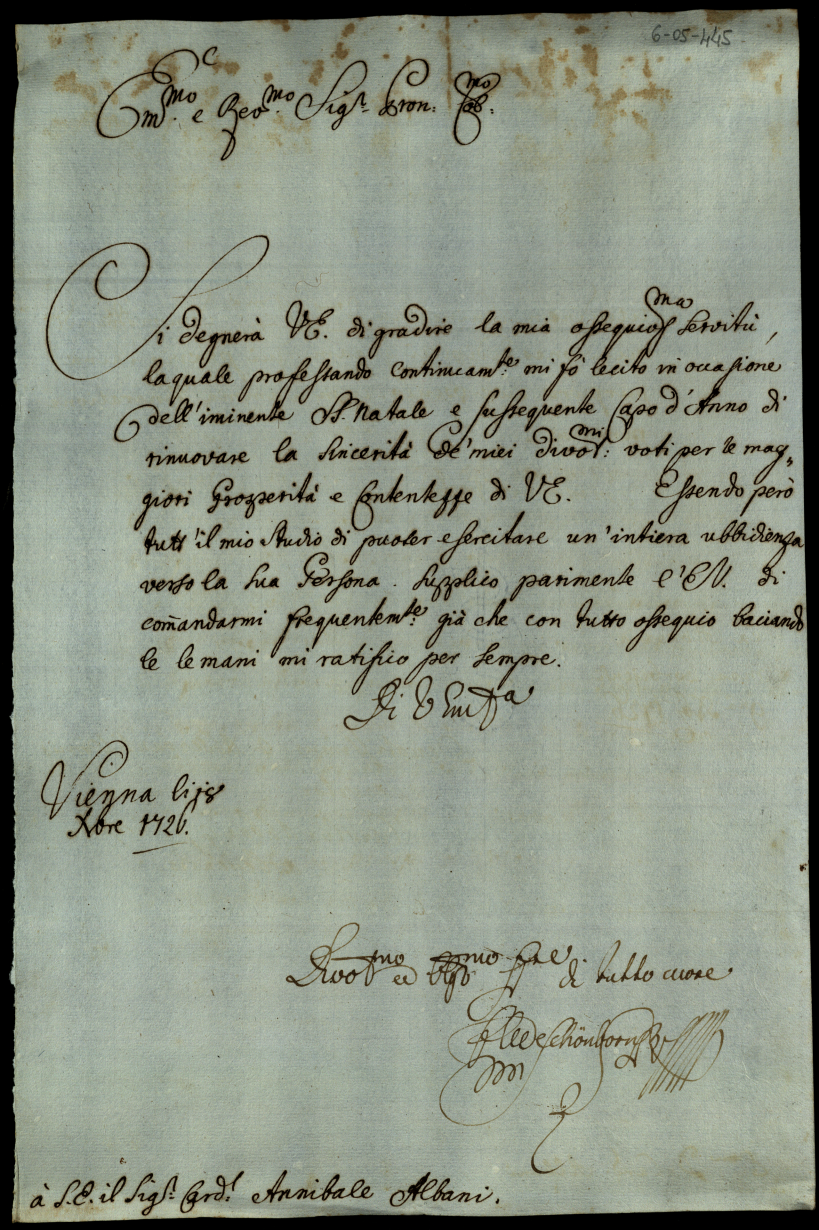 6-05-445
Em.mo e Rev.mo Sig.r Pron: Col.mo:
Si degnerà VE. di gradire la mia ossequios.ma servitù,
la quale professando continuam.te mi fò lecito in occasione
dell'iminente SS. Natale e sussequente Capo d'Anno di
rinuovare la sincerità de' miei divot.mi: voti per le mag„
giori Prosperità e Contentezze di VE. Essendo però
tutt'il mio studio di puoter esercitare un'intiera ubbidienza
verso la sua Persona. supplico parimente l'EV. di
com̄andarmi frequentem.te già che con tutto ossequio baciando
le le mani mi ratifico per sempre.
Di V Em.za
Vienna li 18
Xbre 1726.
Divot.mo ed Oblg.mo Sre di tutto cuore
de Schönborn
à S. E. il Sig.r Card.l Annibale Albani.